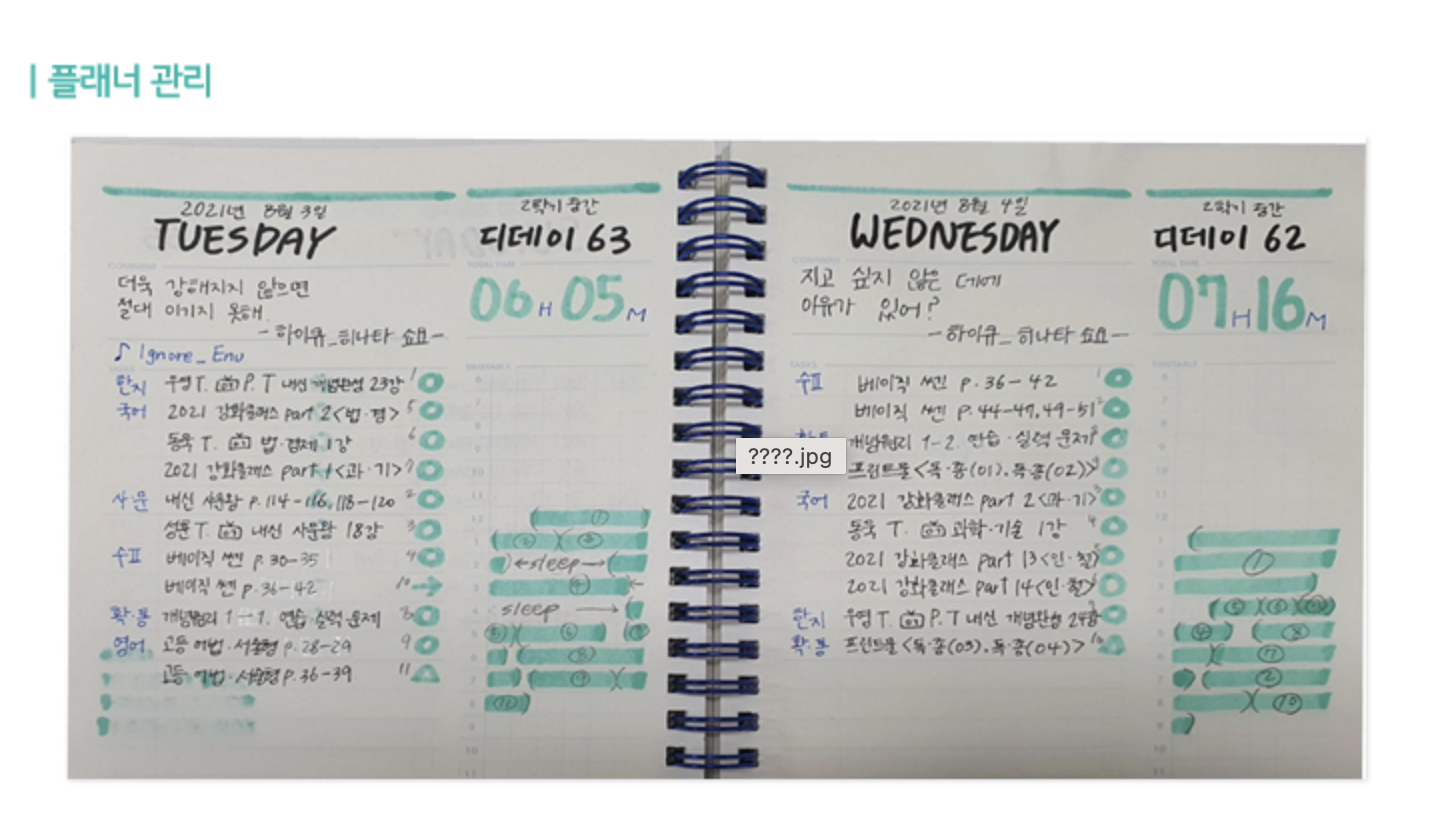 | 플래너 관리
2021년 8월 3일
TUESDAY
2학기 중간
디데이 63
COMMENT
TOTAL TIME
더욱 강해지지 않으면
절대 이기지 못해.
-하이큐_히나타 쇼요-
06H 05M
♪ Ignore_Env
TASKS
TIMETABLE
한지 우영T. P.T 내신 개념완성 23강 1
국어 2021 강화클래스 part 2<법·경> 5
동욱 T. 법·경제 1강 6
2021 강화클래스 part <과·기> 7
사·문 내신 사문왕 p.114-116, 118-120 2
성훈T. 내신 사문왕 18강 3
수Ⅱ 베이직 쎈 p.30-35 4
베이직 쎈 p.36-42 10
확·통 개념원리 1-1. 연습·실력 문제 8
영어 고등 어법·서술형 p.28-29 9
고등 어법·서술형 p.36-39 11
←sleep→
sleep →
2021년 8월 4일
WEDNESDAY
2학기 중간
디데이 62
COMMENT
TOTAL TIME
지고 싶지 않은 데에
이유가 있어?
-하이큐_히나타 쇼요-
07H 16M
TASKS
TIMETABLE
수Ⅱ 베이직 쎈 p.36-42 1
베이직 쎈 p.44-47, 49-51 2
개념원리 1-2. 연습·실력 문제
프린트물<독·종(01). 독·종(02)>
국어 2021 강화클래스 part 2<과·기>
동욱 T. 과학·기술 1강
2021 강화클래스 part 13<인·철>
2021 강화클래스 part 14<인·철>
한지 우영 T. P.T 내신 개념완성 24강
확·통 프린트물<독·종(03). 독·종(04)> 10
????.jpg